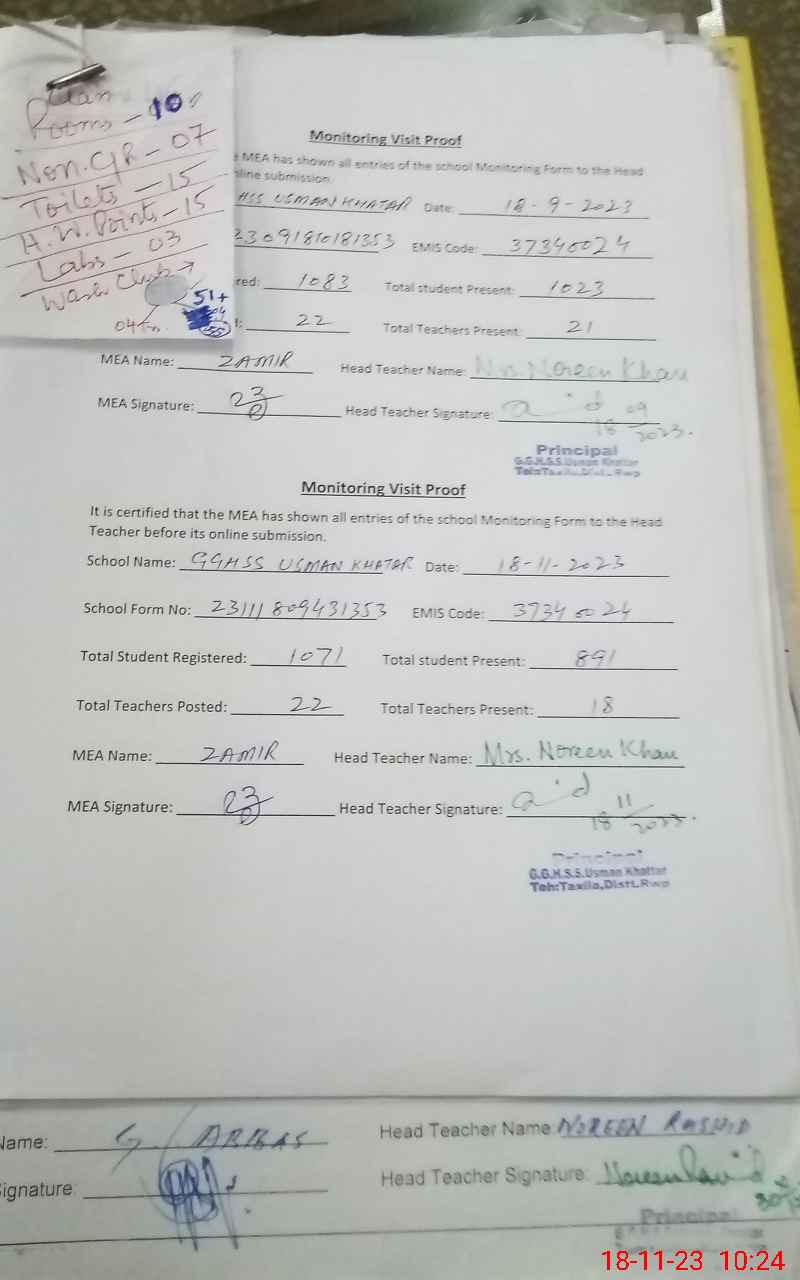 Rooms - 10
Non.CR - 07
Toilets - 15
H.W.Points - 15
Labs - 03
Wash Club →
51+
04
Monitoring Visit Proof
MEA has shown all entries of the school Monitoring Form to the Head
nline submission.
HSS USMAN KHATAR Date: 18-9-2023
23091810181353 EMIS Code: 37340024
red: 1083 Total student Present: 1023
22 Total Teachers Present: 21
MEA Name: ZAMIR Head Teacher Name: Mrs. Noreen Khan
MEA Signature: Head Teacher Signature: 18 09/2023.
Principal
G.G.H.S.S.Usman Khattar
Teh:Taxila,Distt.Rwp
Monitoring Visit Proof
It is certified that the MEA has shown all entries of the school Monitoring Form to the Head
Teacher before its online submission.
School Name: GGHSS USMAN KHATAR Date: 18-11-2023
School Form No: 23111809431353 EMIS Code: 37340024
Total Student Registered: 1071 Total student Present: 891
Total Teachers Posted: 22 Total Teachers Present: 18
MEA Name: ZAMIR Head Teacher Name: Mrs. Noreen Khan
MEA Signature: Head Teacher Signature: 18 11/2023.
Principal
G.G.H.S.S.Usman Khattar
Teh:Taxila,Distt.Rwp
Name: G. ABBAS Head Teacher Name NOREEN RASHID
ignature: Head Teacher Signature:
Principal
18-11-23 10:24